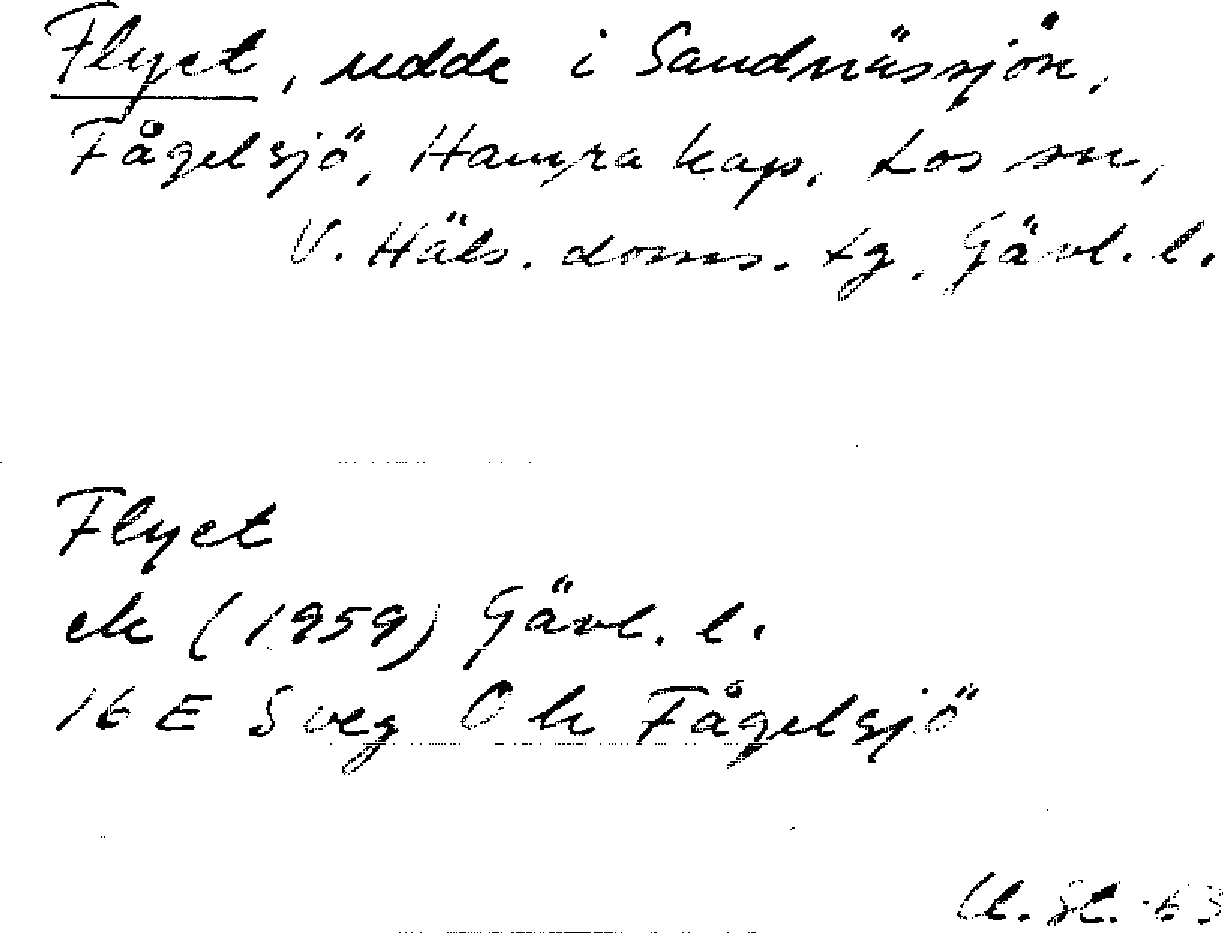 Flyet, udde i Sandnässjön,
Fågelsjö, Hamra kap, Los sn,
V. Häls. doms. tg. Gävl. l.
Flyet
ek (1959) Gävl. l.
16 E Sveg O k Fågelsjö
-63